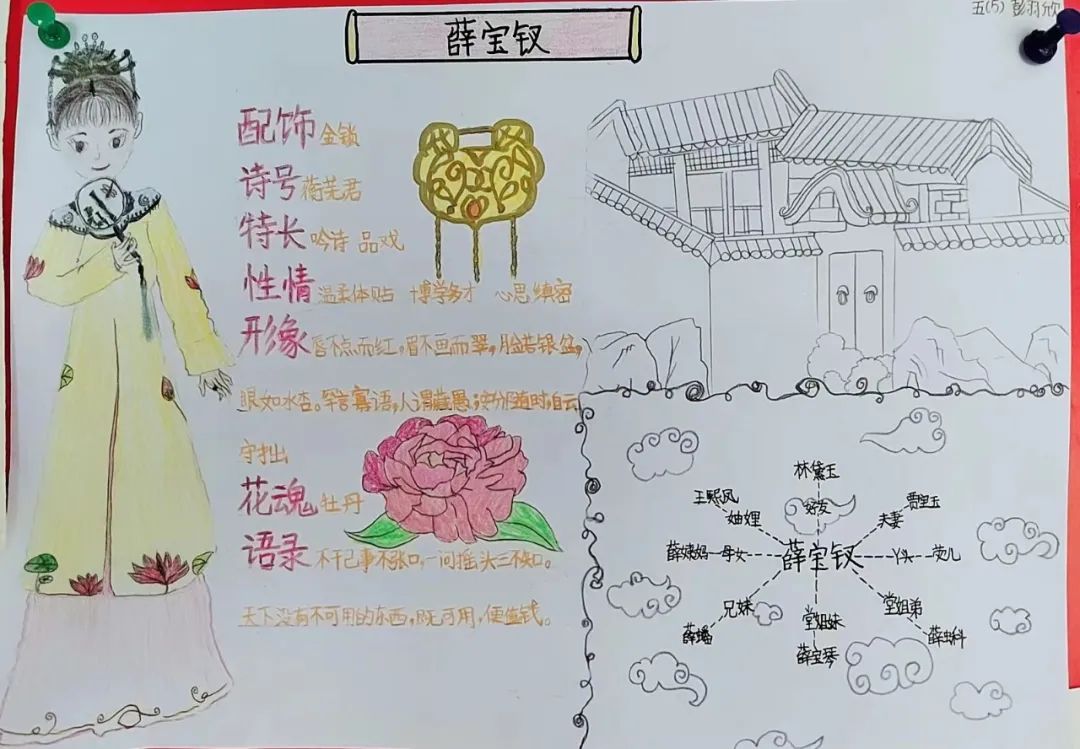 五(5) 彭羽欣
薛宝钗
配饰 金锁
诗号 蘅芜君
特长 吟诗 品戏
性情 温柔体贴 博学多才 心思缜密
形象 唇不点而红,眉不画而翠,脸若银盆,
眼如水杏。罕言寡语,人谓藏愚;安分随时,自云
守拙
花魂 牡丹
语录 不干己事不张口,一问摇头三不知。
天下没有不可用的东西,既可用,便值钱。
林黛玉
好友
王熙凤
妯娌
贾宝玉
夫妻
薛姨妈 母女
薛宝钗
丫头 莺儿
兄妹
薛蟠
堂姐妹
薛宝琴
堂姐弟
薛蝌